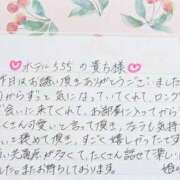 ♡ホテル555の貴方様♡
昨日はお誘い頂きありがとうございました
前からずっと気になっていてくれて、ロング
で会いに来てくれて、お部屋に入ってから
たくさん可愛いと言って頂き、
と褒めて頂き、すごく嬉しかったです
共通点が多くて、たくさん話せて楽しい
またお待ちしております。